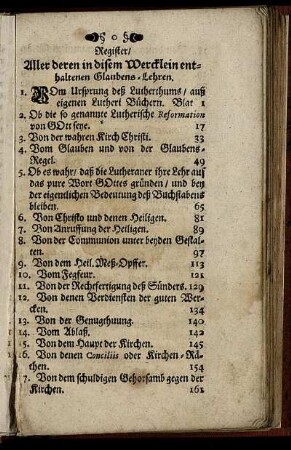 § o §
Register/
Aller deren in disem Wercklein ent-
haltenen Glaubens-Lehren.
1. VOm Ursprung deß Lutherthums/ auß
eigenen Lutheri Büchern. Blat 1
2. Ob die so genannte Lutherische Reformation
von GOtt seye. 17
3. Von der wahren Kirch Christi. 33
4. Vom Glauben und von der Glaubens-
Regel. 49
5. Ob es wahr/ daß die Lutheraner ihre Lehr auf
das pure Wort GOttes gründen/ und bey
der eigentlichen Bedeutung deß Buchstabens
bleiben. 65
6. Von Christo und denen Heiligen. 81
7. Von Anruffung der Heiligen. 89
8. Von der Communion unter beyden Gestal-
ten. 97
9. Von dem Heil. Meß-Opffer. 113
10. Vom Fegfeur. 121
11. Von der Rechtfertigung deß Sünders. 129
12. Von denen Verdiensten der guten Wer-
cken. 134
13. Von der Genugthuung. 140
14. Vom Ablaß. 142
15. Von dem Haupt der Kirchen. 145
16. Von denen Conciliis oder Kirchen-Rä-
then. 154
7. Von dem schuldigen Gehorsamb gegen der
Kirchen. 161